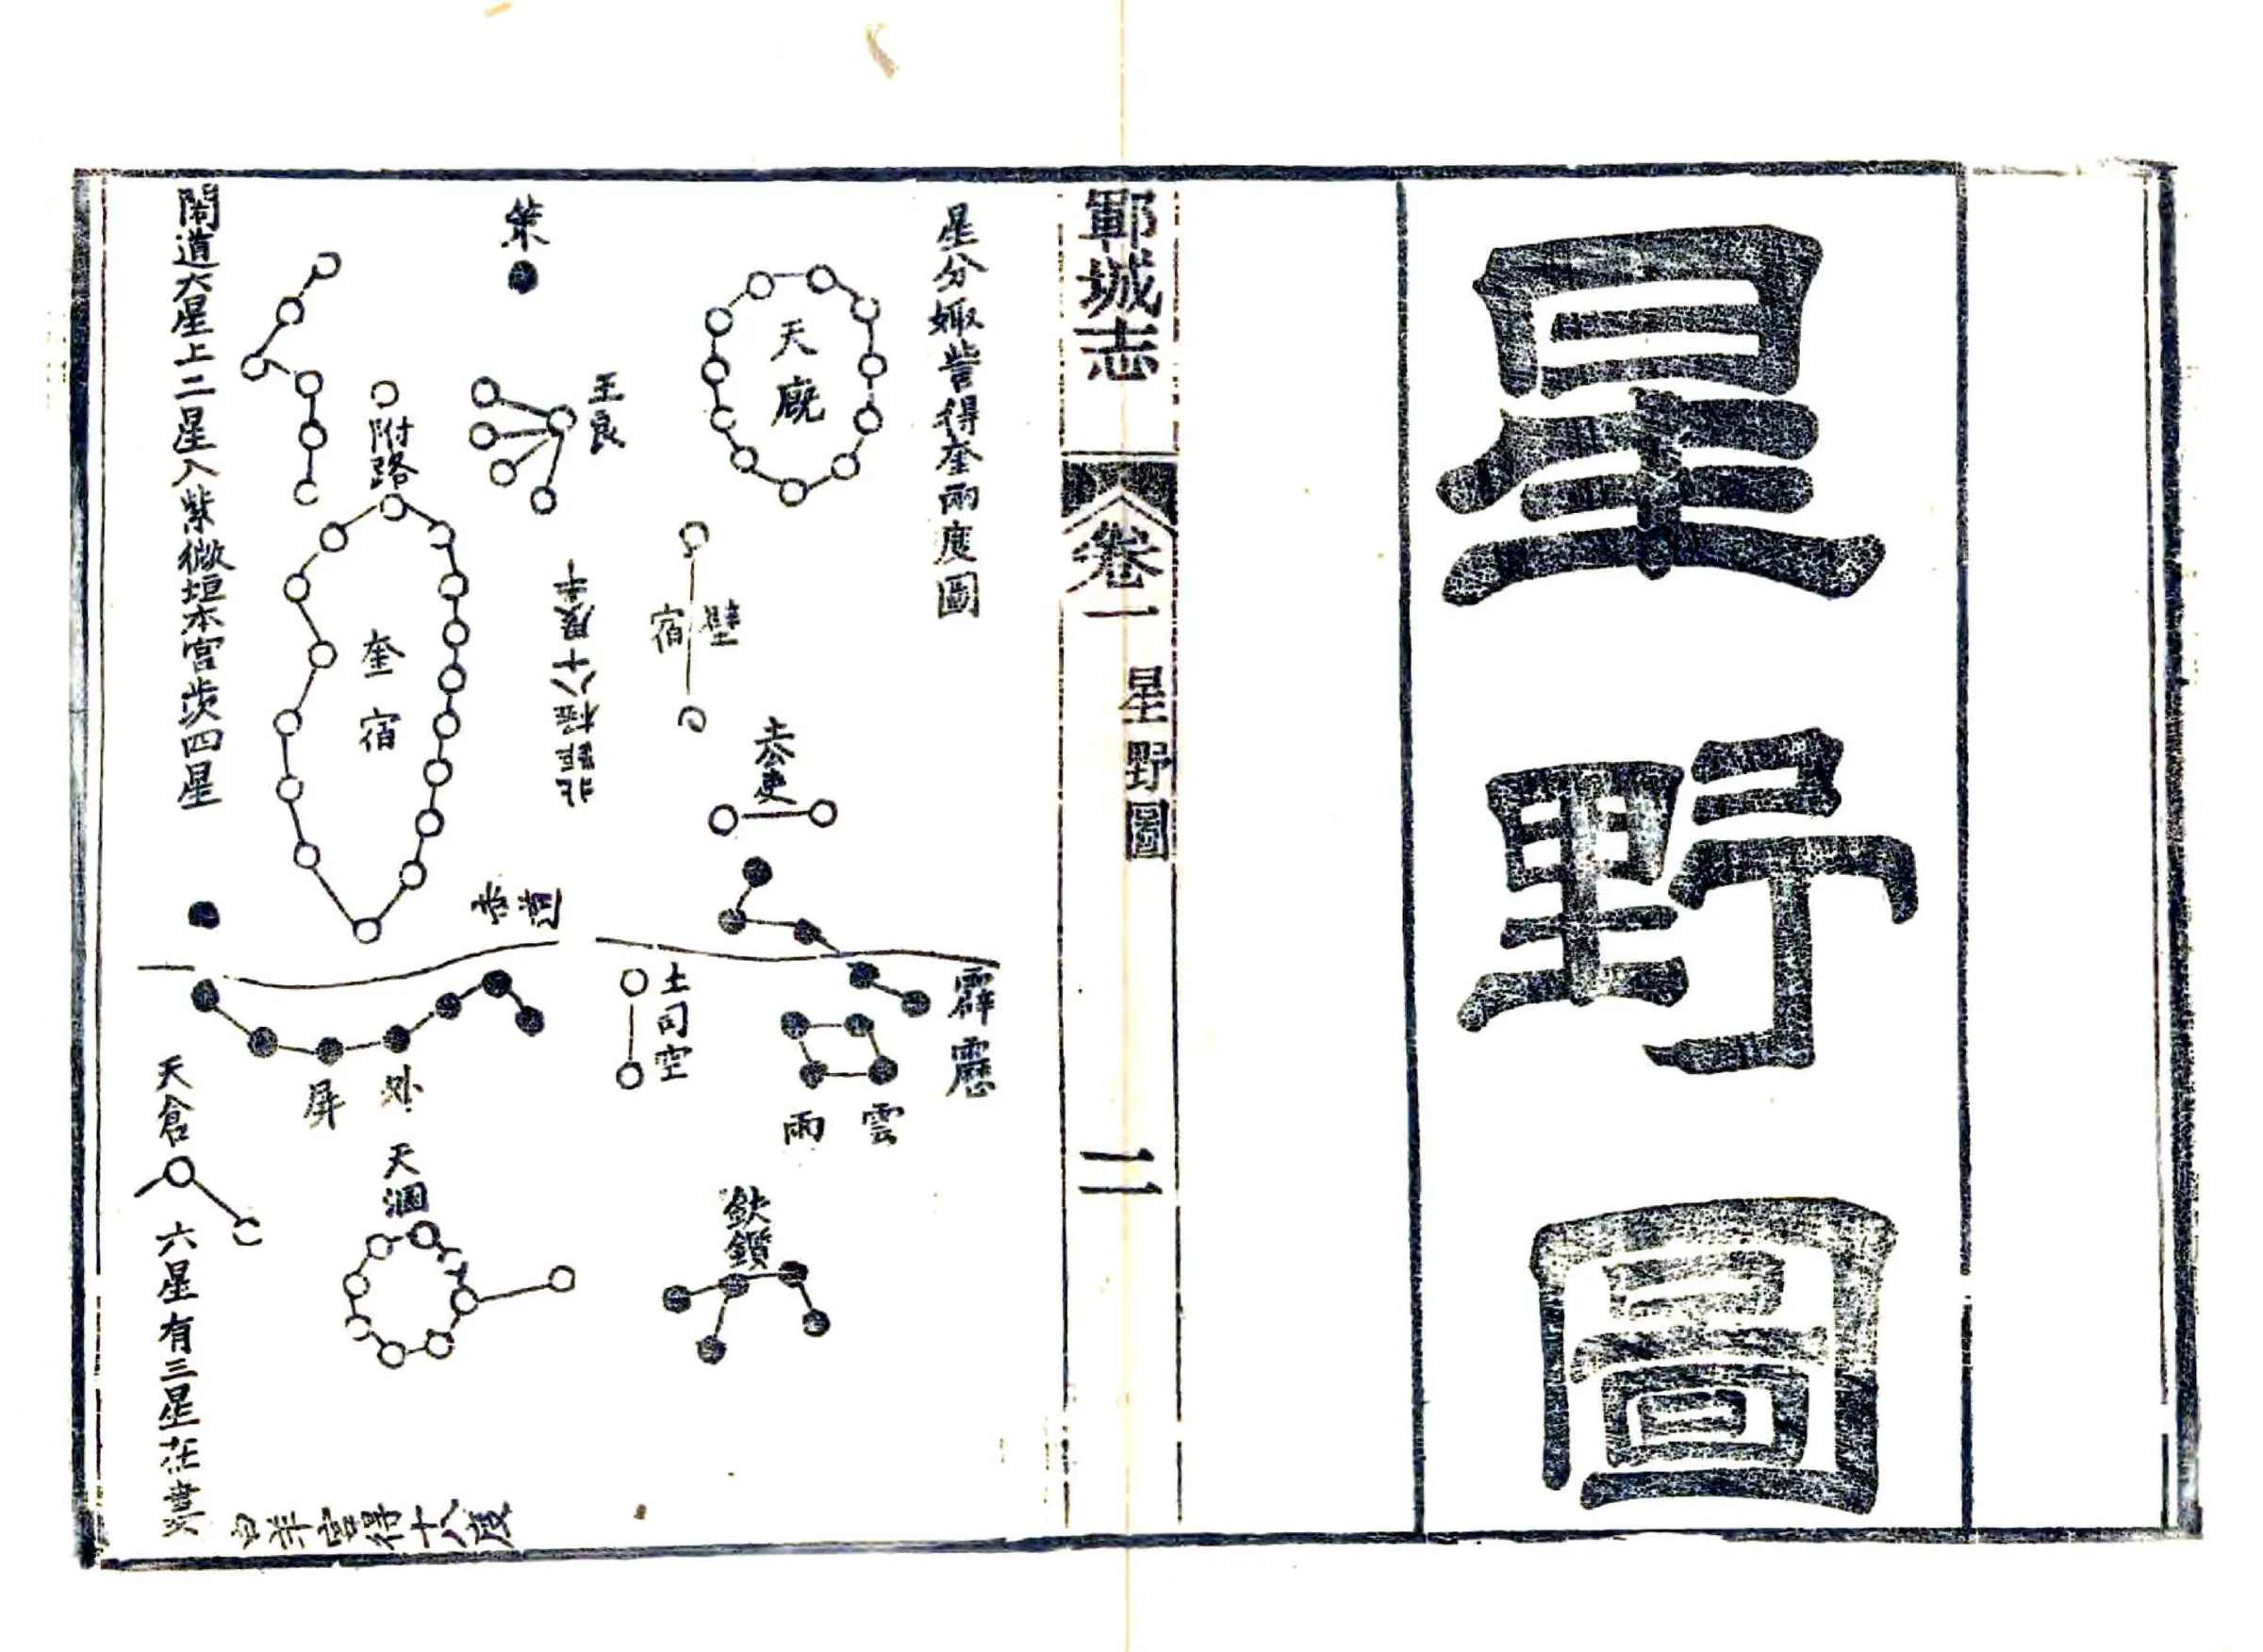 星野圖
鄆城志
卷一
星野圖
二
星分娵訾得奎兩度圖
天廐
壁宿
土公吏
霹靂
雲雨
王良
策
北距極八十度半
土司空
鈇鑕
附路
奎宿
外屏
天溷
閣道六星上二星入紫微垣本宮茨四星
天倉
六星有三星在婁
白羊宮得十八度